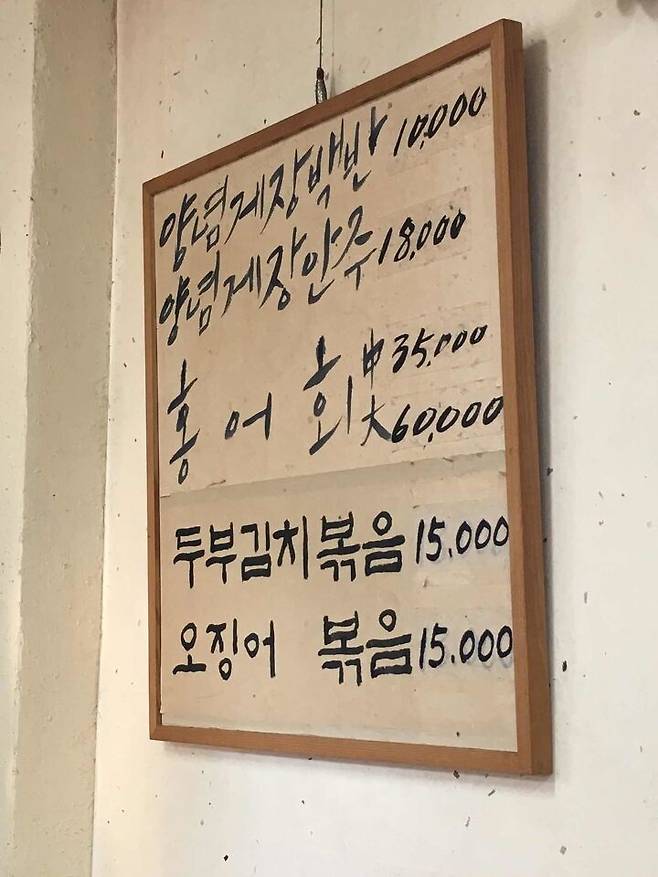 양념게장백반 10,000
양념게장안주 18,000
홍어회 中 35,000
大 60,000
두부김치볶음 15.000
오징어 볶음 15.000